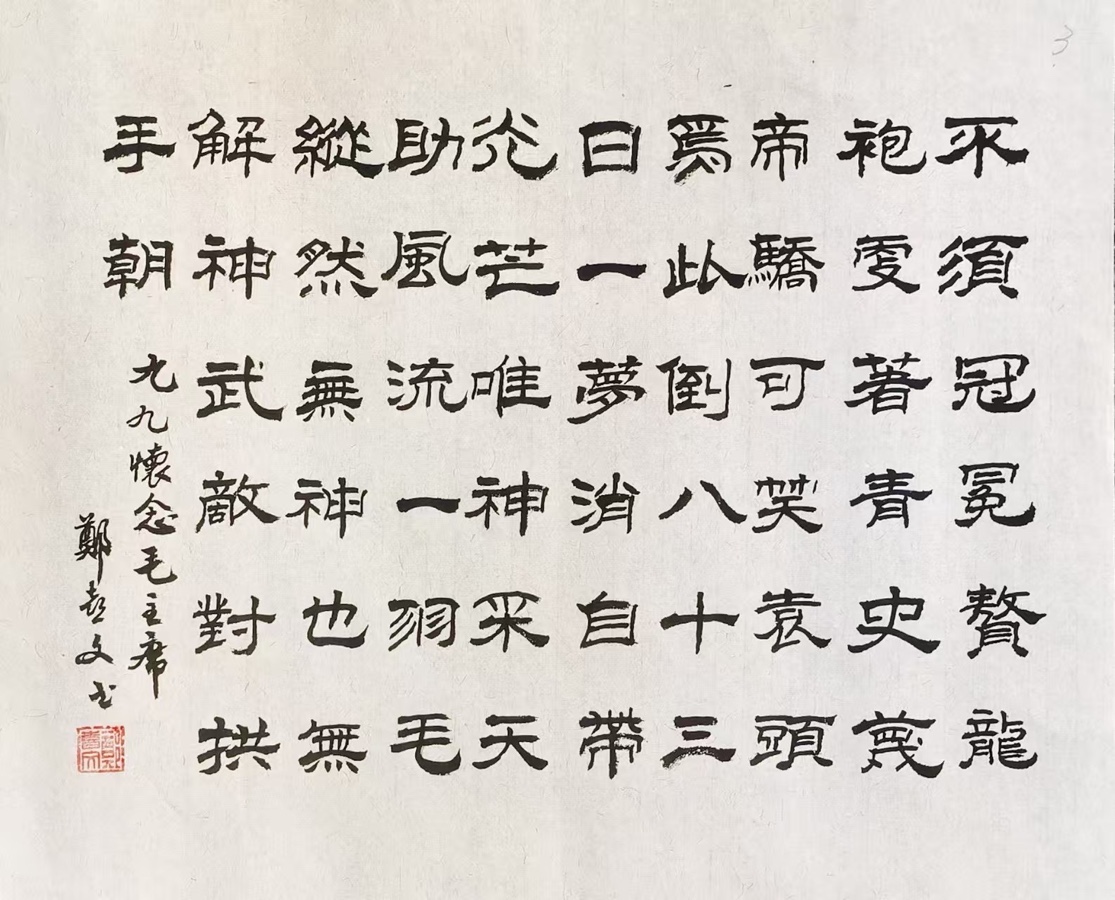 3
不須冠冕贅龍
袍更著青史蔑
帝驕可笑袁頭
爲此倒八十三
日一夢消自帶
光芒唯神采天
助風流一羽毛
縱然無神也無
解神武敵對拱
手朝
九九懷念毛主席
鄭喜文书